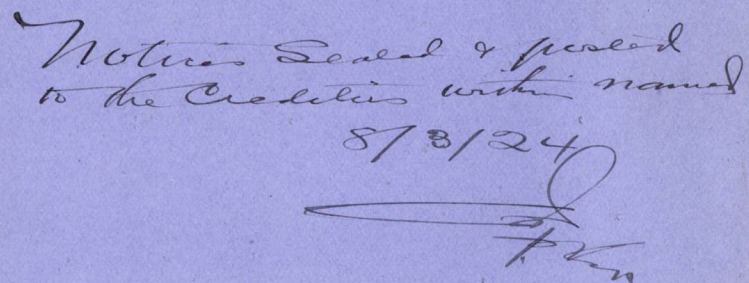 Notices Sealed & posted
to the Creditors within named
8/3/24